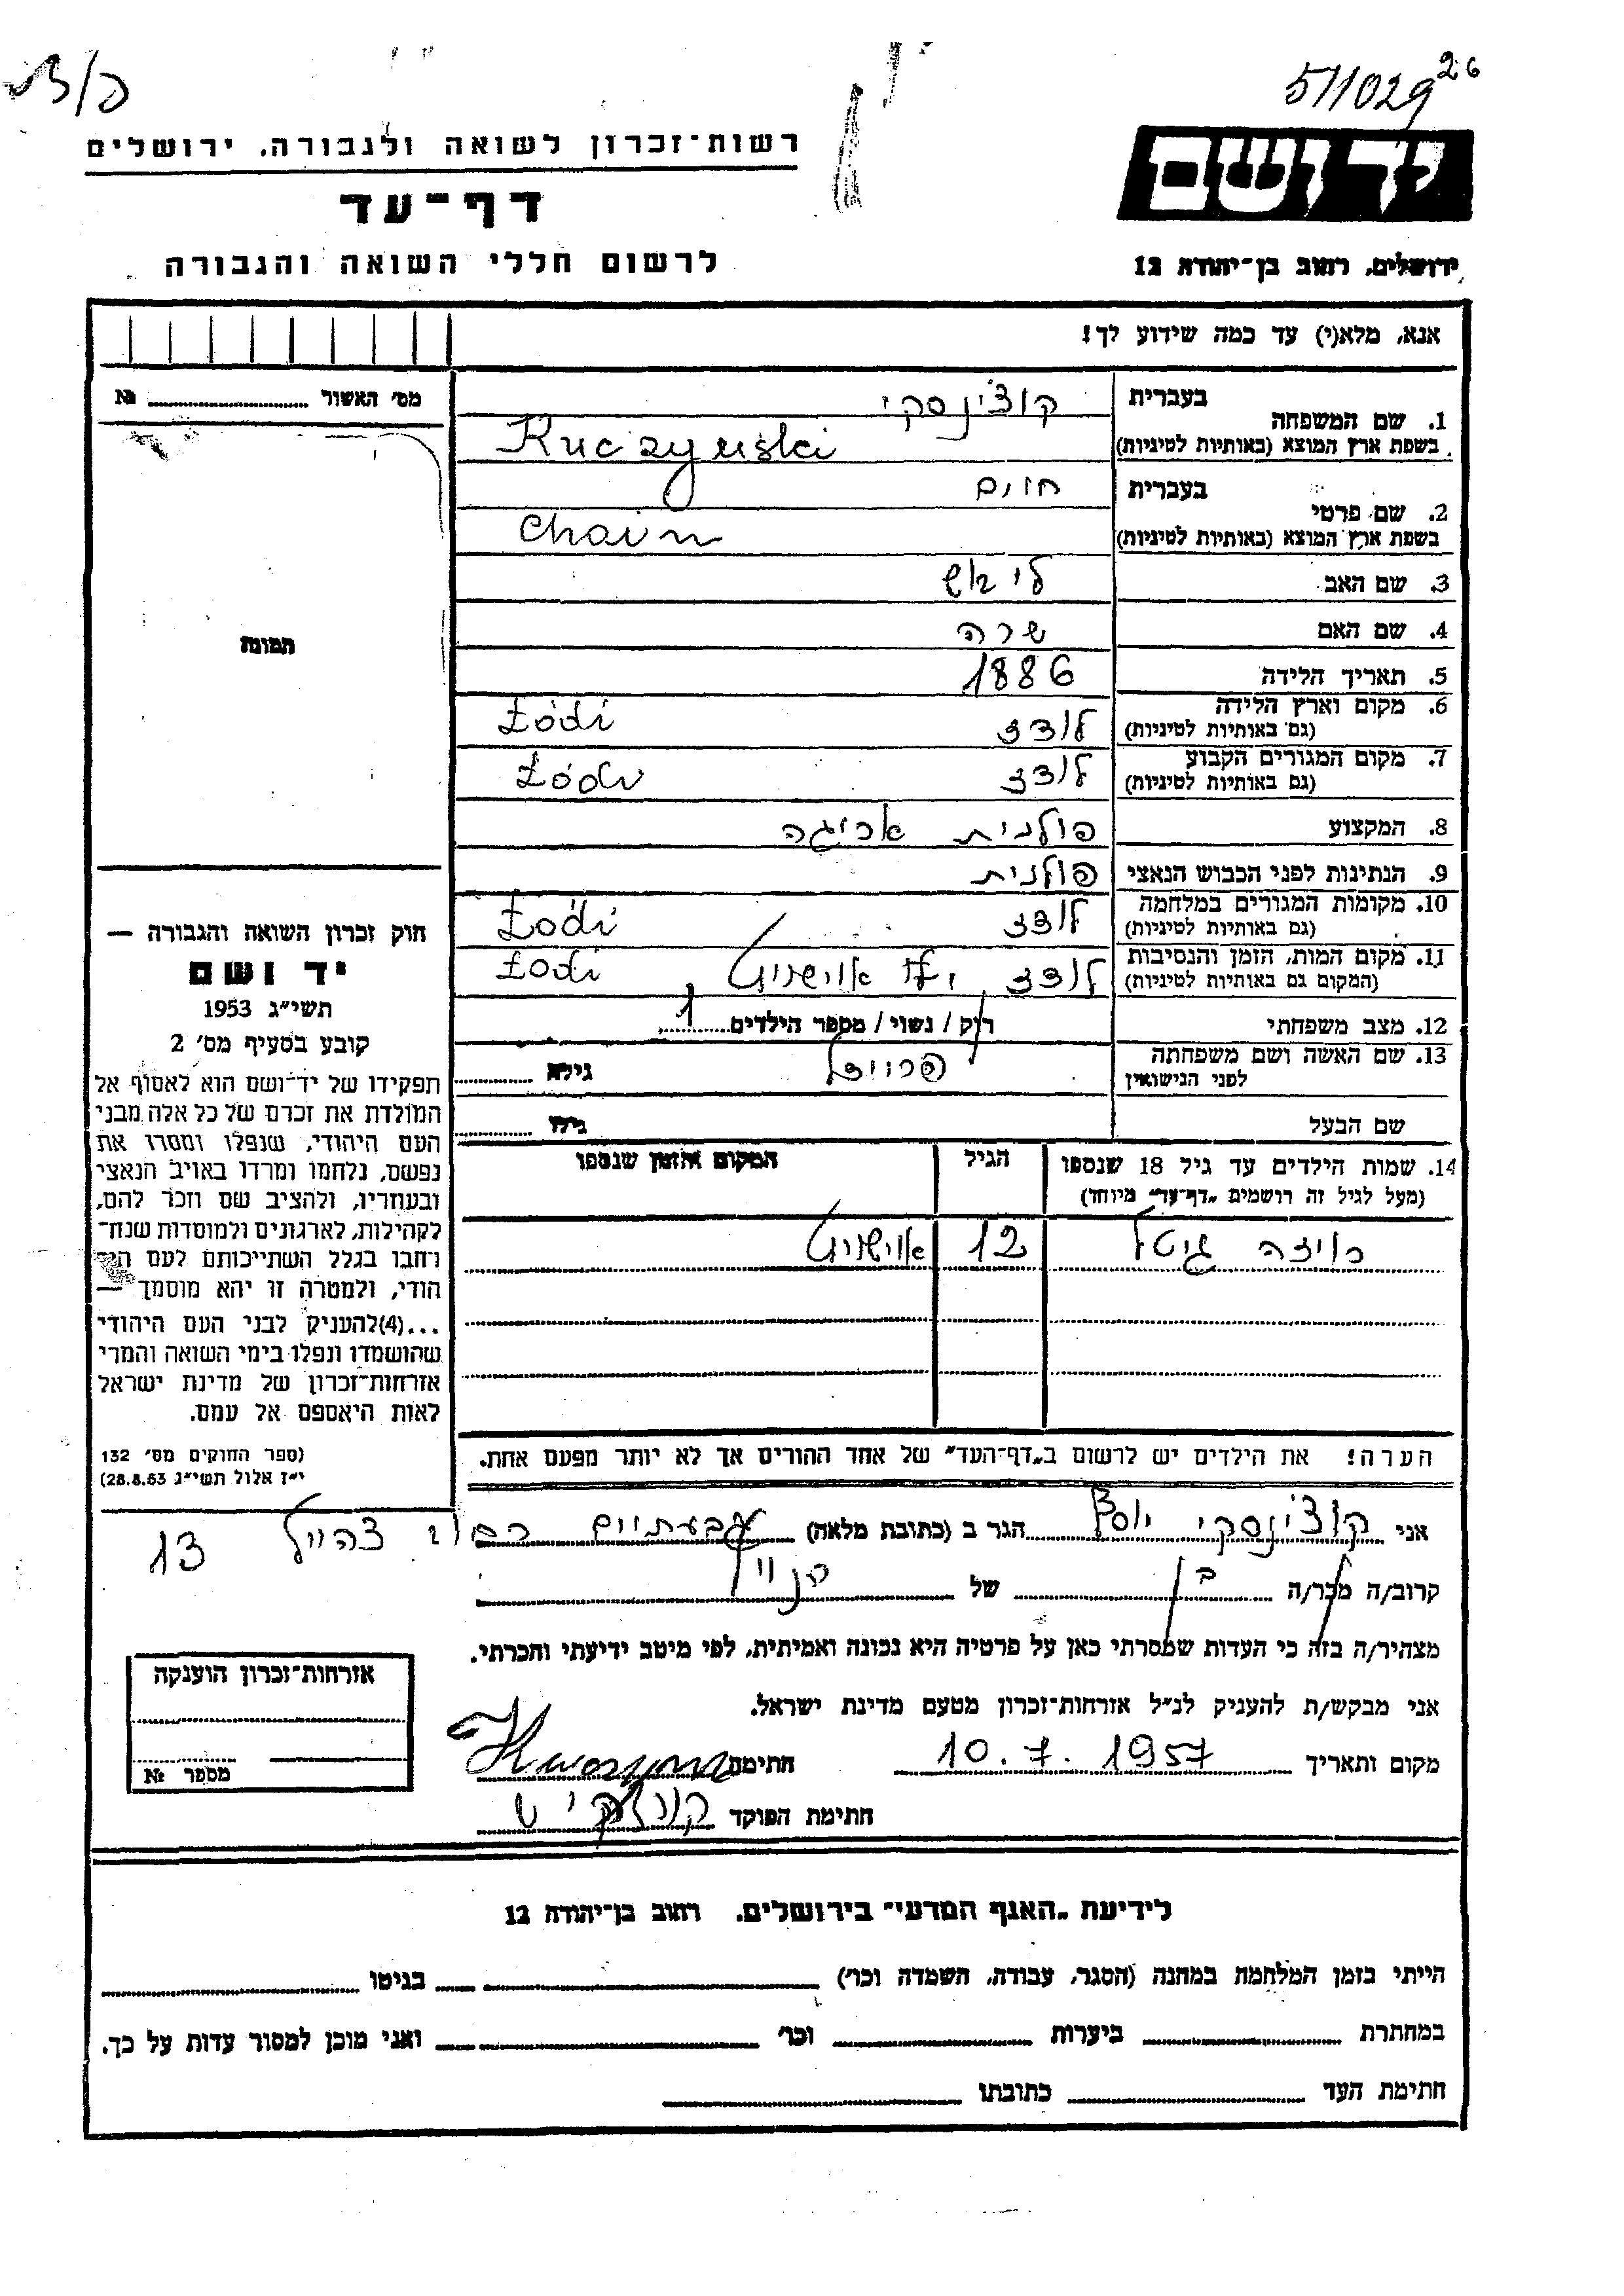 511029 26
יד ושם
רשות־זכרון לשואה ולגבורה, ירושלים
דף־עד
לרשום חללי השואה והגבורה
ירושלים, רחוב בן־יהודה 12
אנא, מלא(י) עד כמה שידוע לך!
מס׳ האשור №
1. שם המשפחה בעברית קוצ׳ינסקי
בשפת ארץ המוצא (באותיות לטיניות) Kuczyński
2. שם פרטי בעברית חיים
בשפת ארץ המוצא (באותיות לטיניות) Chaim
3. שם האב
4. שם האם שרה
5. תאריך הלידה 1886
6. מקום וארץ הלידה (גם באותיות לטיניות) לודז Łódź
7. מקום המגורים הקבוע (גם באותיות לטיניות) לודז Łódź
8. המקצוע אריגה
9. הנתינות לפני הכבוש הנאצי פולנית
10. מקומות המגורים במלחמה (גם באותיות לטיניות) לודז Łódź
11. מקום המות, הזמן והנסיבות (המקום גם באותיות לטיניות) לודז Łódź
12. מצב משפחתי רוק / נשוי / מספר הילדים 1
13. שם האשה ושם משפחתה לפני הנישואין גילה
שם הבעל גילו
תמונה
14. שמות הילדים עד גיל 18 שנספו (מעל לגיל זה רושמים „דף־עד״ מיוחד) הגיל המקום והזמן שנספו
גיטל 12
הערה! את הילדים יש לרשום ב„דף־העד״ של אחד ההורים אך לא יותר מפעם אחת.
חוק זכרון השואה והגבורה —
יד ושם
תשי״ג 1953
קובע בסעיף מס׳ 2
תפקידו של יד־ושם הוא לאסוף אל
המולדת את זכרם של כל אלה מבני
העם היהודי, שנפלו ומסרו את
נפשם, נלחמו ומרדו באויב הנאצי
ובעוזריו, ולהציב שם וזכר להם,
לקהילות, לארגונים ולמוסדות שנח־
רחבו בגלל השתייכותם לעם הי־
הודי, ולמטרה זו יהא מוסמך —
...(4)להעניק לבני העם היהודי
שהושמדו ונפלו בימי השואה והמרי
אזרחות־זכרון של מדינת ישראל
לאות היאספם אל עמם.
(ספר החוקים מס׳ 132
י״ז אלול תשי״ג 28.8.53)
אני קוצ׳ינסקי יוסף הגר ב (כתובת מלאה) גבעתיים 13
קרוב/ה מכר/ה בן של
מצהיר/ה בזה כי העדות שמסרתי כאן על פרטיה היא נכונה ואמיתית, לפי מיטב ידיעתי והכרתי.
אני מבקש/ת להעניק לנ״ל אזרחות־זכרון מטעם מדינת ישראל.
מקום ותאריך 10.7.1957 חתימה
חתימת הפוקד
אזרחות־זכרון הוענקה
מספר №
לידיעת „האגף המדעי״ בירושלים, רחוב בן־יהודה 12
הייתי בזמן המלחמה במחנה (הסגר, עבודה, השמדה וכו׳) בגיטו
במחתרת ביערות וכו׳ ואני מוכן למסור עדות על כך.
חתימת העד כתובתו